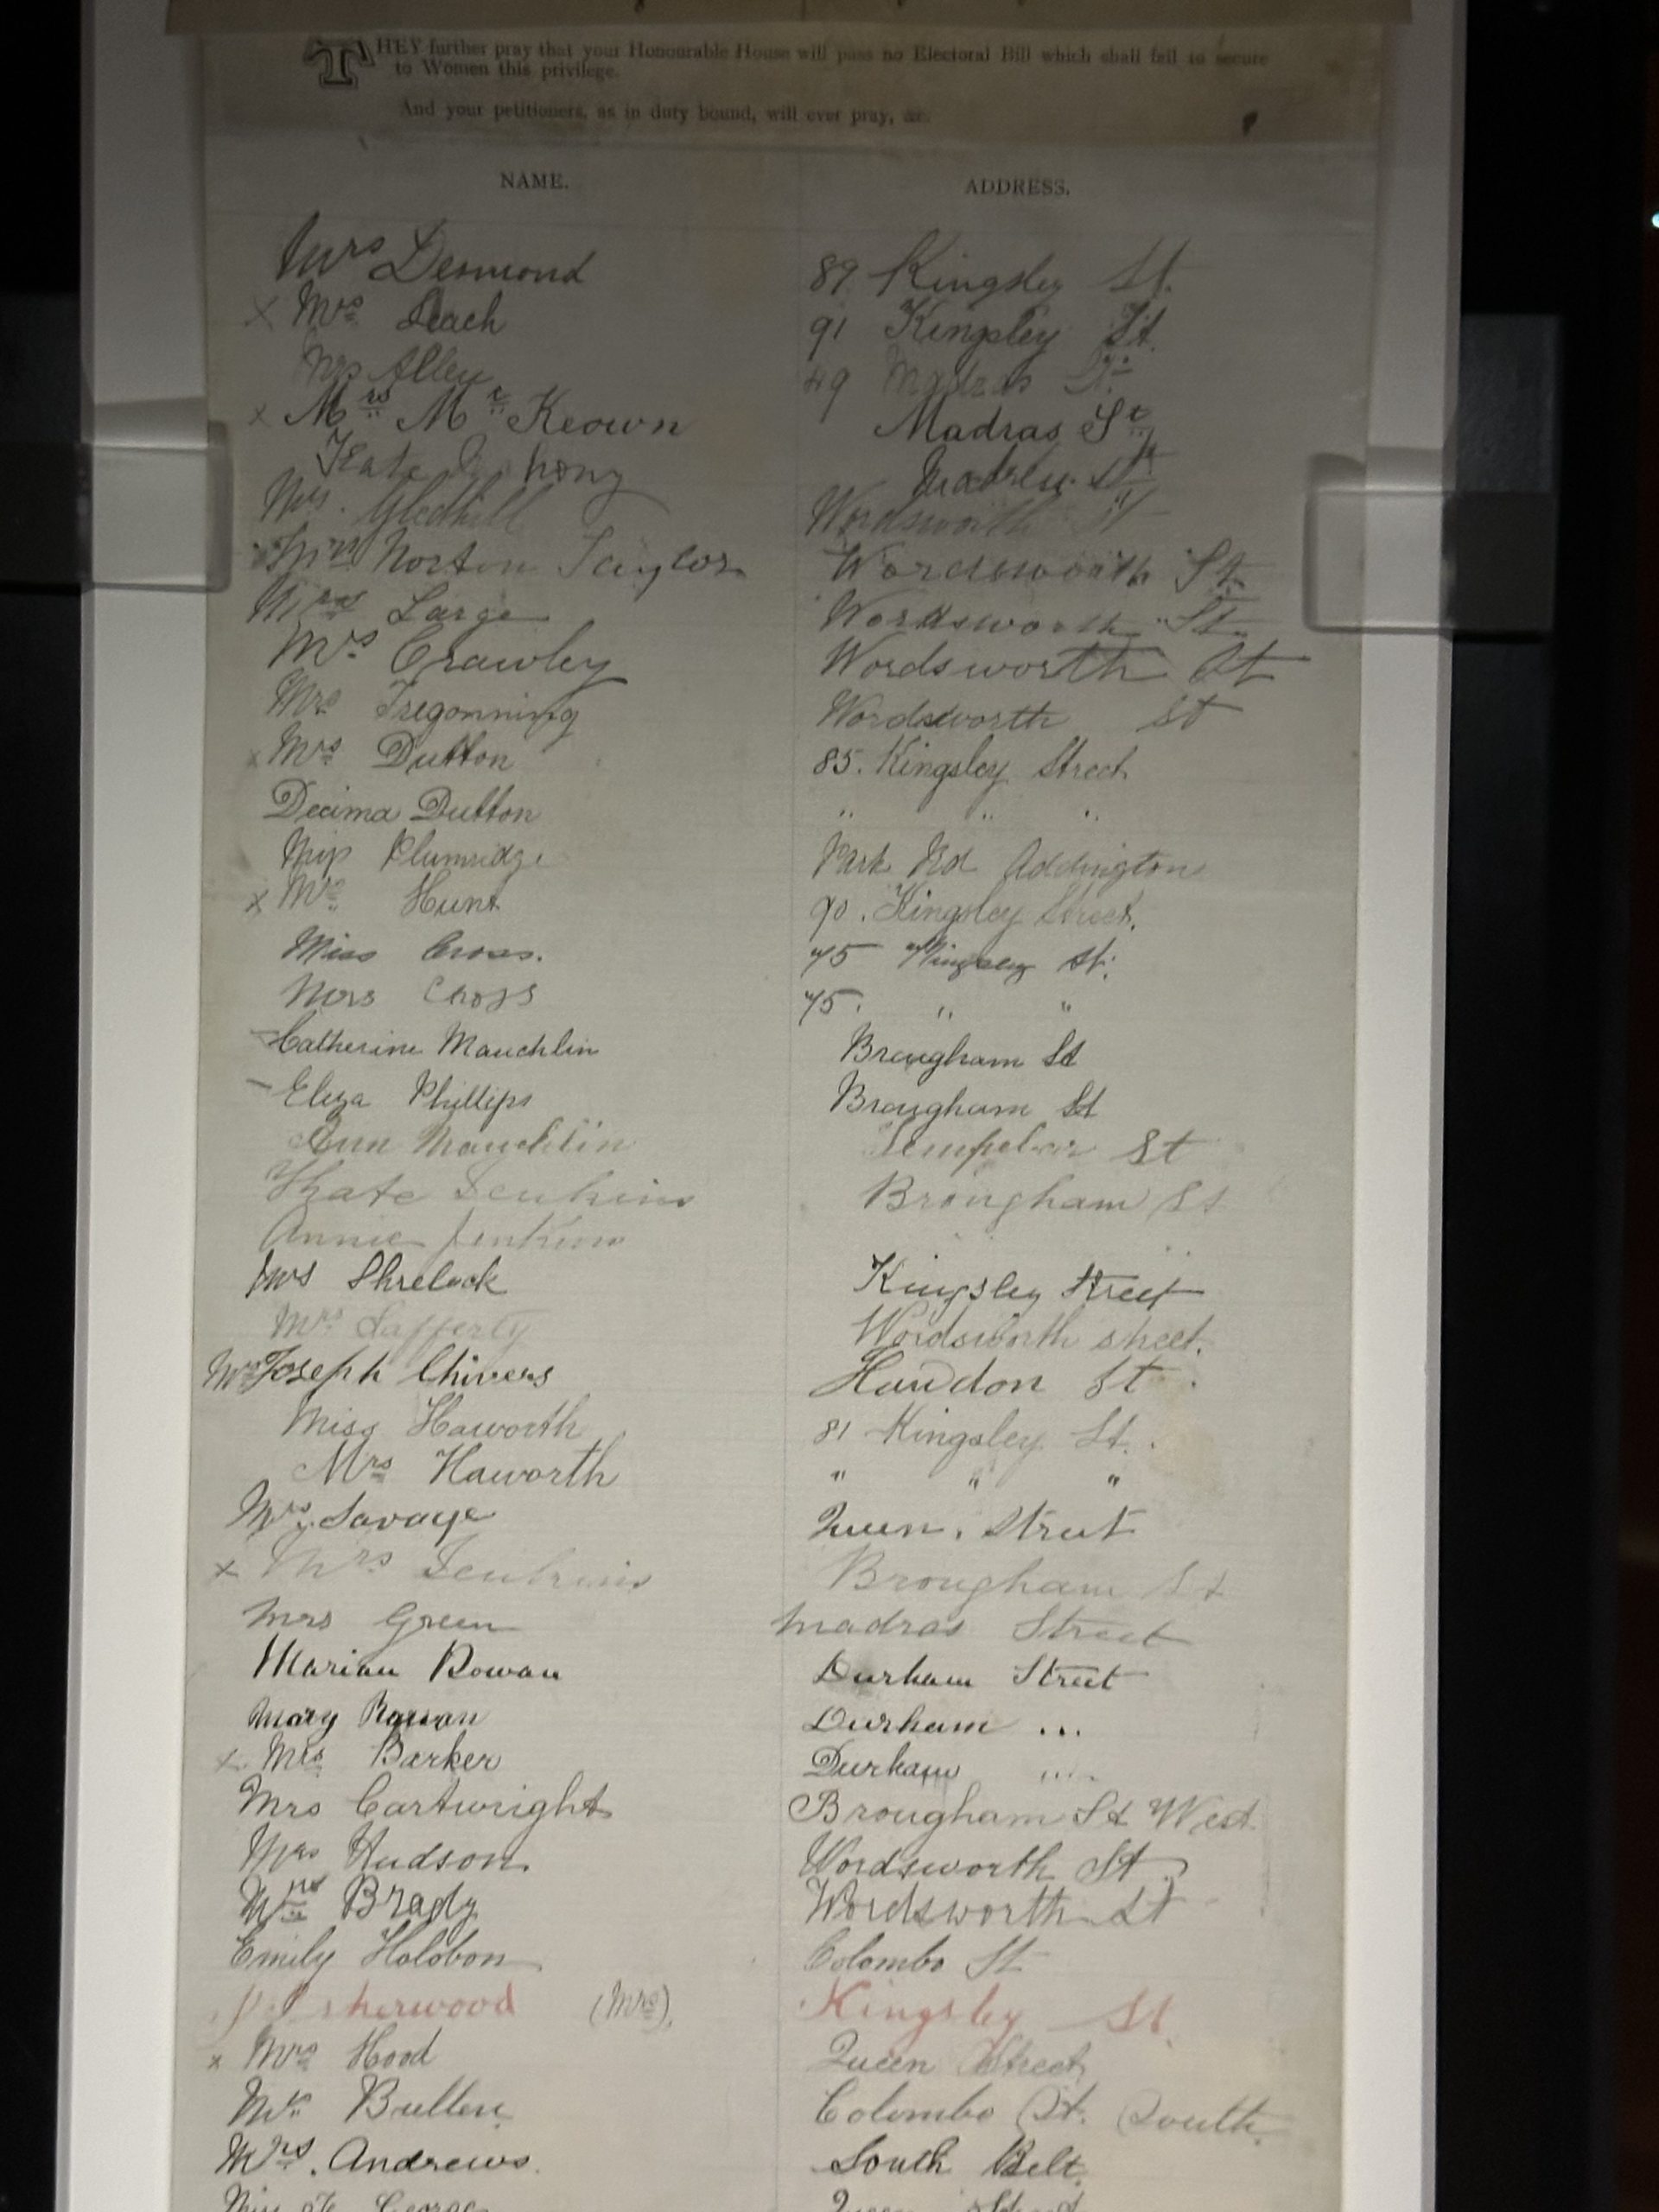 THEY further pray that your Honourable House will pass no Electoral Bill which shall fail to secure
to Women this privilege.
And your petitioners, as in duty bound, will ever pray, &c.
NAME. ADDRESS.
Mrs Desmond 89 Kingsley St.
x Mrs Leach 91 Kingsley St.
Mrs Alley 49 Madras St.
x Mrs Mc Keown Madras St
Kate Madras St
Mrs. Gledhill Wordsworth St
Mrs Norton Taylor Wordsworth St.
Mrs Large Wordsworth St.
Mrs Crawley Wordsworth St
Mrs Tregonning Wordsworth St
x Mrs Dutton 85. Kingsley Street
Decima Dutton " " "
Miss Plumridge Park Rd Addington
x Mrs Hunt 90. Kingsley Street.
Miss Cross. 75 Kingsley St.
Mrs Cross 75. " "
Catherine Mauchlin Brougham St
- Eliza Phillips Brougham St
Ann Mauchlin St
Kate Jenkins Brougham St
Annie Jenkins " "
Mrs Shrelock Kingsley Street
Mrs Lafferty Wordsworth street.
Mrs Joseph Chivers Hawdon St.
Miss Haworth 81 Kingsley St.
Mrs Haworth " " "
Mrs Savage Queen. Street
x Mrs Jenkins Brougham St
Mrs Green Madras Street
Marian Rowan Durham Street
Mary Rowan Durham ...
x Mrs Barker Durham ....
Mrs Cartwright Brougham St West
Mrs Hudson. Wordsworth St.
Mrs Brady Wordsworth St
Emily Holobon Colombo St
Isherwood (Mrs). Kingsley St.
x Mrs Hood Queen Street
Mrs Bullen Colombo St. South.
Mrs. Andrews. South Belt.
Miss George Queen Street